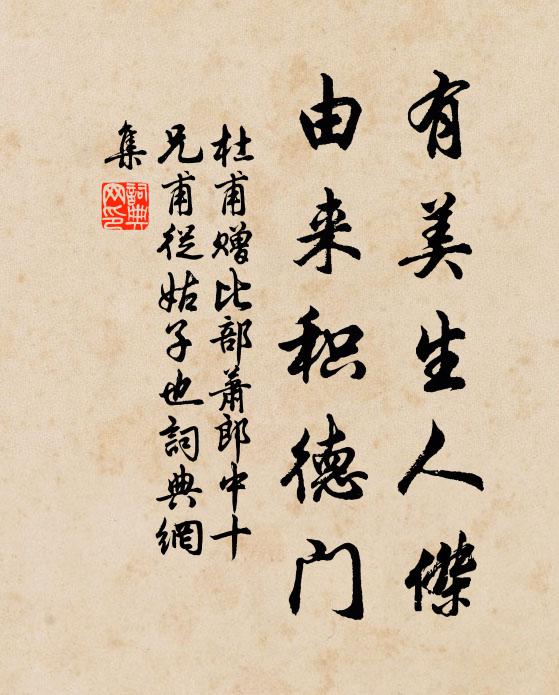 有美生人傑
由来积德门
杜甫赠比部萧郎中十
兄甫從姑子也詞典網
集
詞典
网印